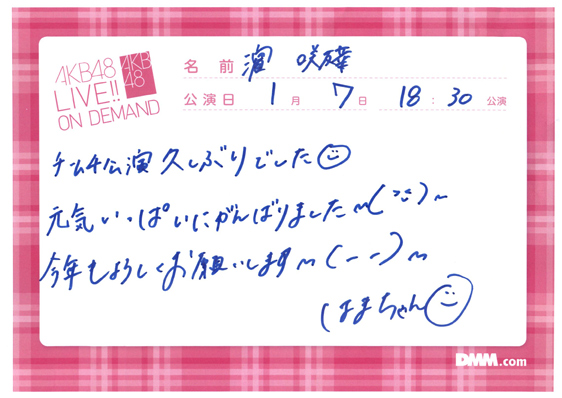 AKB48
LIVE!!
ON DEMAND
AKB
48
名前 濵 咲友菜
公演日 1月 7日 18:30公演
チーム4公演久しぶりでした
元気いっぱいにがんばりましたm(_ _)m
今年もよろしくお願いしますm(--)m
はまちゃん
DMM.com